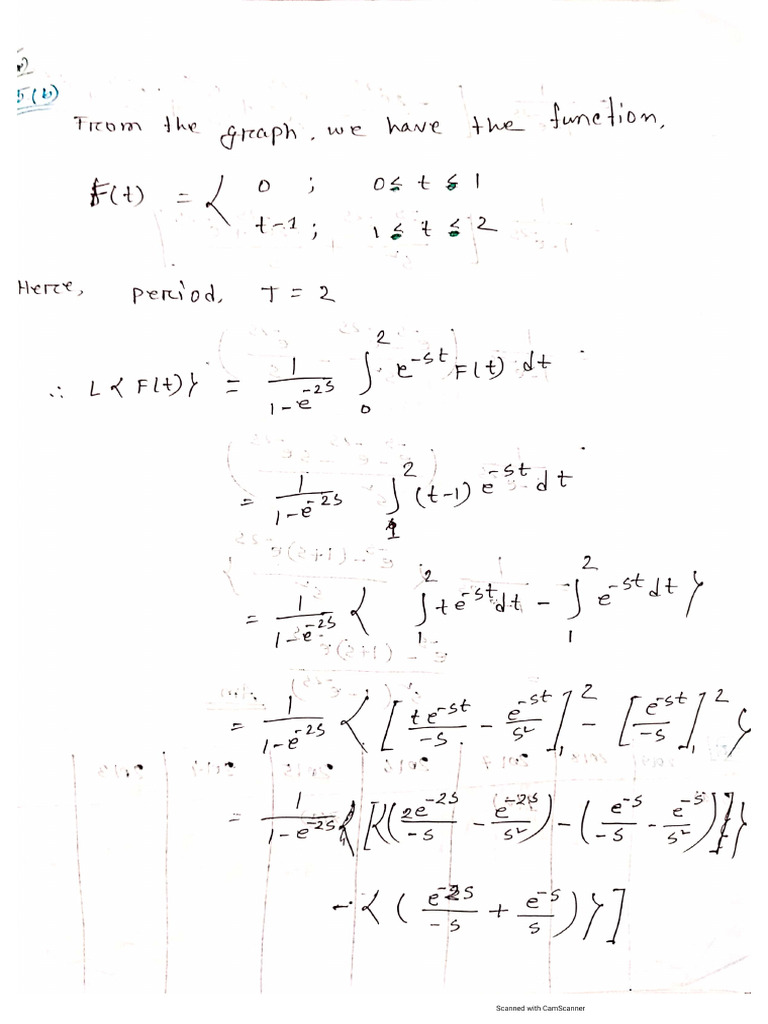 5(b)
From the graph, we have the function,
F(t) = { 0 ; 0 ≤ t ≤ 1
t-1 ; 1 ≤ t ≤ 2
Here, period, T = 2
∴ L{F(t)} = 1/(1-e^{-2s}) ∫_0^2 e^{-st} F(t) dt
= 1/(1-e^{-2s}) ∫_1^2 (t-1) e^{-st} dt
= 1/(1-e^{-2s}) { ∫_1^2 t e^{-st} dt - ∫_1^2 e^{-st} dt }
= 1/(1-e^{-2s}) { [ t e^{-st}/-s - e^{-st}/s² ]_1^2 - [ e^{-st}/-s ]_1^2 }
= 1/(1-e^{-2s}) [ { ( 2e^{-2s}/-s - e^{-2s}/s² ) - ( e^{-s}/-s - e^{-s}/s² ) } ]
- { ( e^{-2s}/-s + e^{-s}/s ) } ]
Scanned with CamScanner